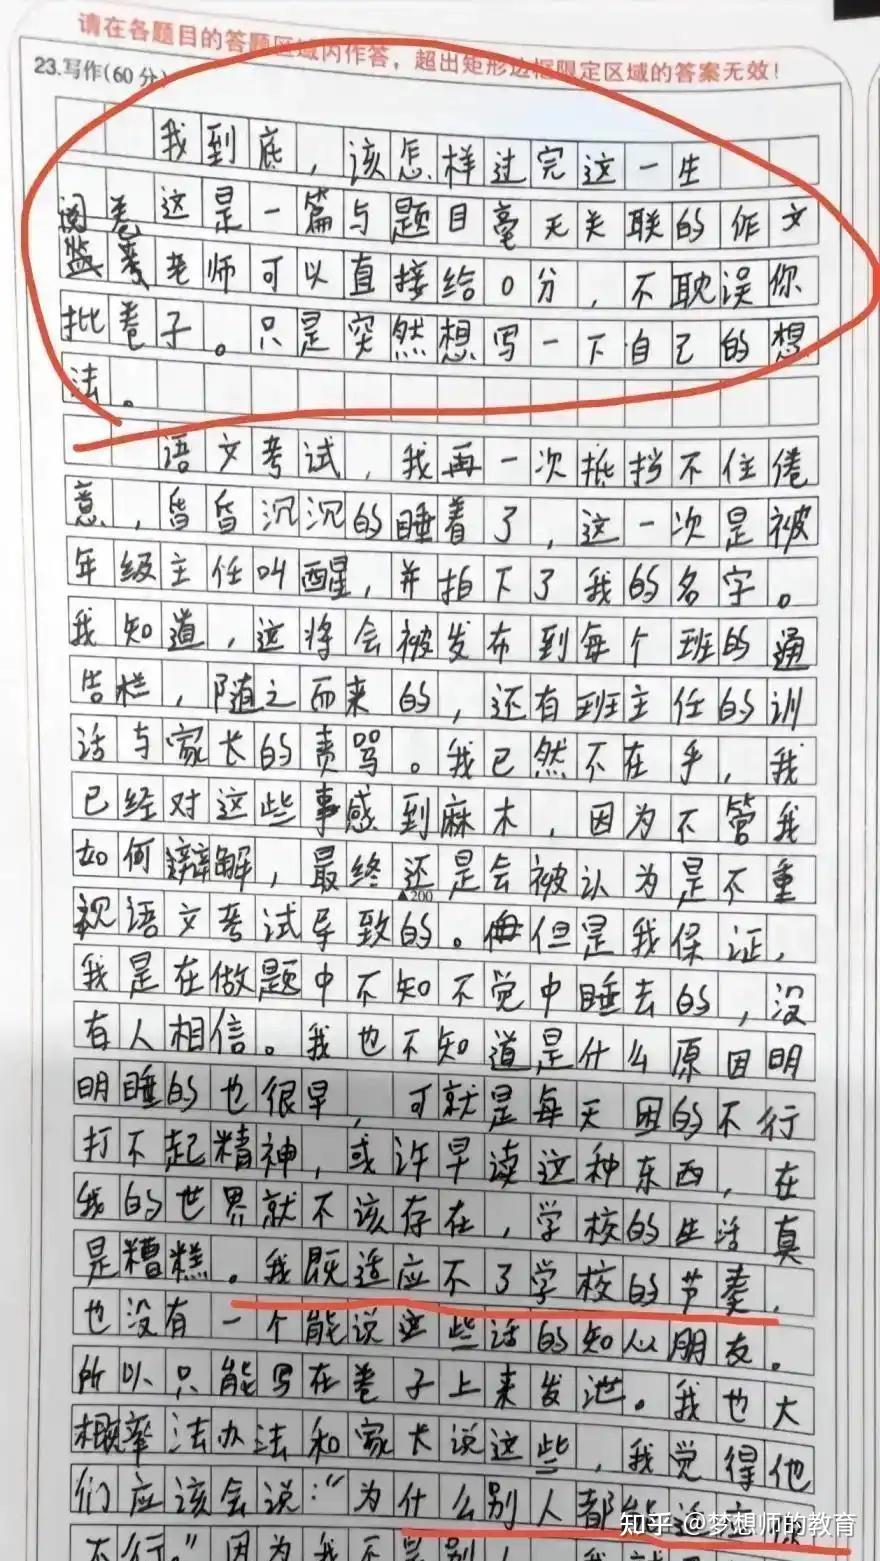 请在各题目的答题区域内作答，超出矩形边框限定区域的答案无效！
23.写作(60分)
我到底，该怎样过完这一生
阅卷这是一篇与题目毫无关联的作文
监考老师可以直接给0分，不耽误你
批卷子。只是突然想写一下自己的想
法。
语文考试，我再一次抵挡不住倦
意，昏昏沉沉的睡着了，这一次是被
年级主任叫醒，并拍下了我的名字。
我知道，这将会被发布到每个班的通
告栏，随之而来的，还有班主任的训
话与家长的责骂。我已然不在乎，我
已经对这些事感到麻木，因为不管我
如何辩解，最终还是会被认为是不重
▲200
视语文考试导致的。但是我保证，
我是在做题中不知不觉中睡去的，没
有人相信。我也不知道是什么原因明
明睡的也很早，可就是每天困的不行
打不起精神，或许早读这种东西，在
我的世界就不该存在，学校的生活真
是糟糕。我既适应不了学校的节奏，
也没有一个能说这些话的知心朋友。
所以只能写在卷子上来发泄。我也大
概率法办法和家长说这些，我觉得他
们应该会说："为什么别人都能适应你
不行。"因为我不是别人
知乎 @梦想师的教育